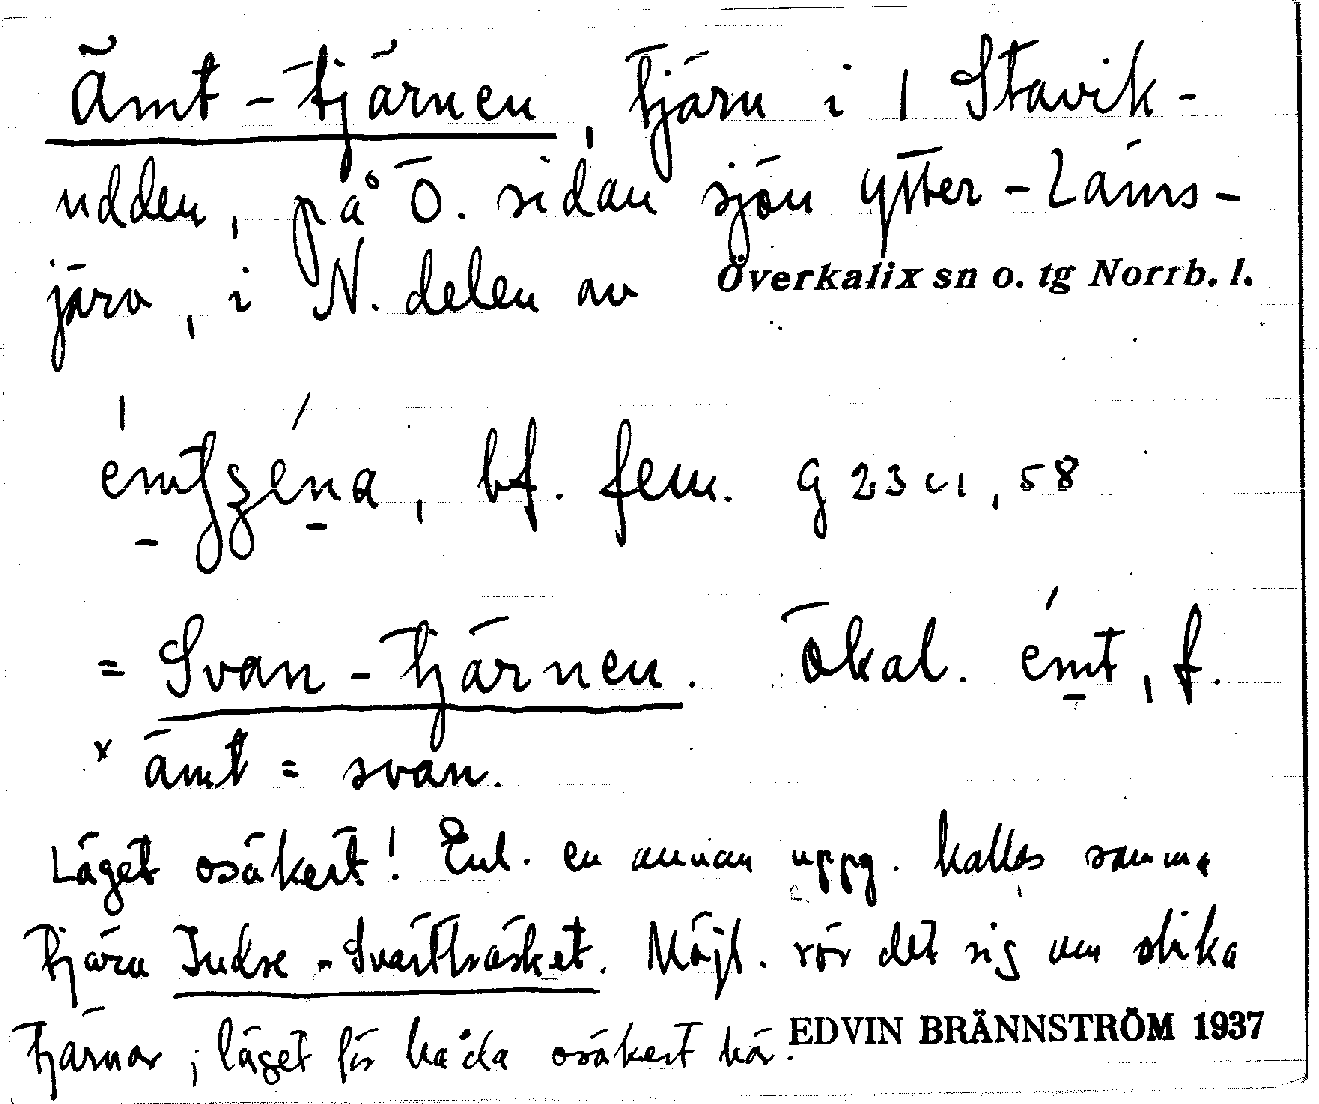 Ämt-tjärnen, tjärn i 1 Stavik-
udden, på Ö. sidan sjön Ytter-Lams-
järv, i N. delen av Överkalix sn o. tg Norrb. l.
bf. fem. g 23 c1, 58
= Svan-tjärnen. Ökal. émt, f.
* ämt = svan.
Läget osäkert! Enl. en annan uppg. kallas samma
tjärn Indre-Svartträsket. Möjl. rör det sig om olika
tjärnar; läget för båda osäkert här. EDVIN BRÄNNSTRÖM 1937